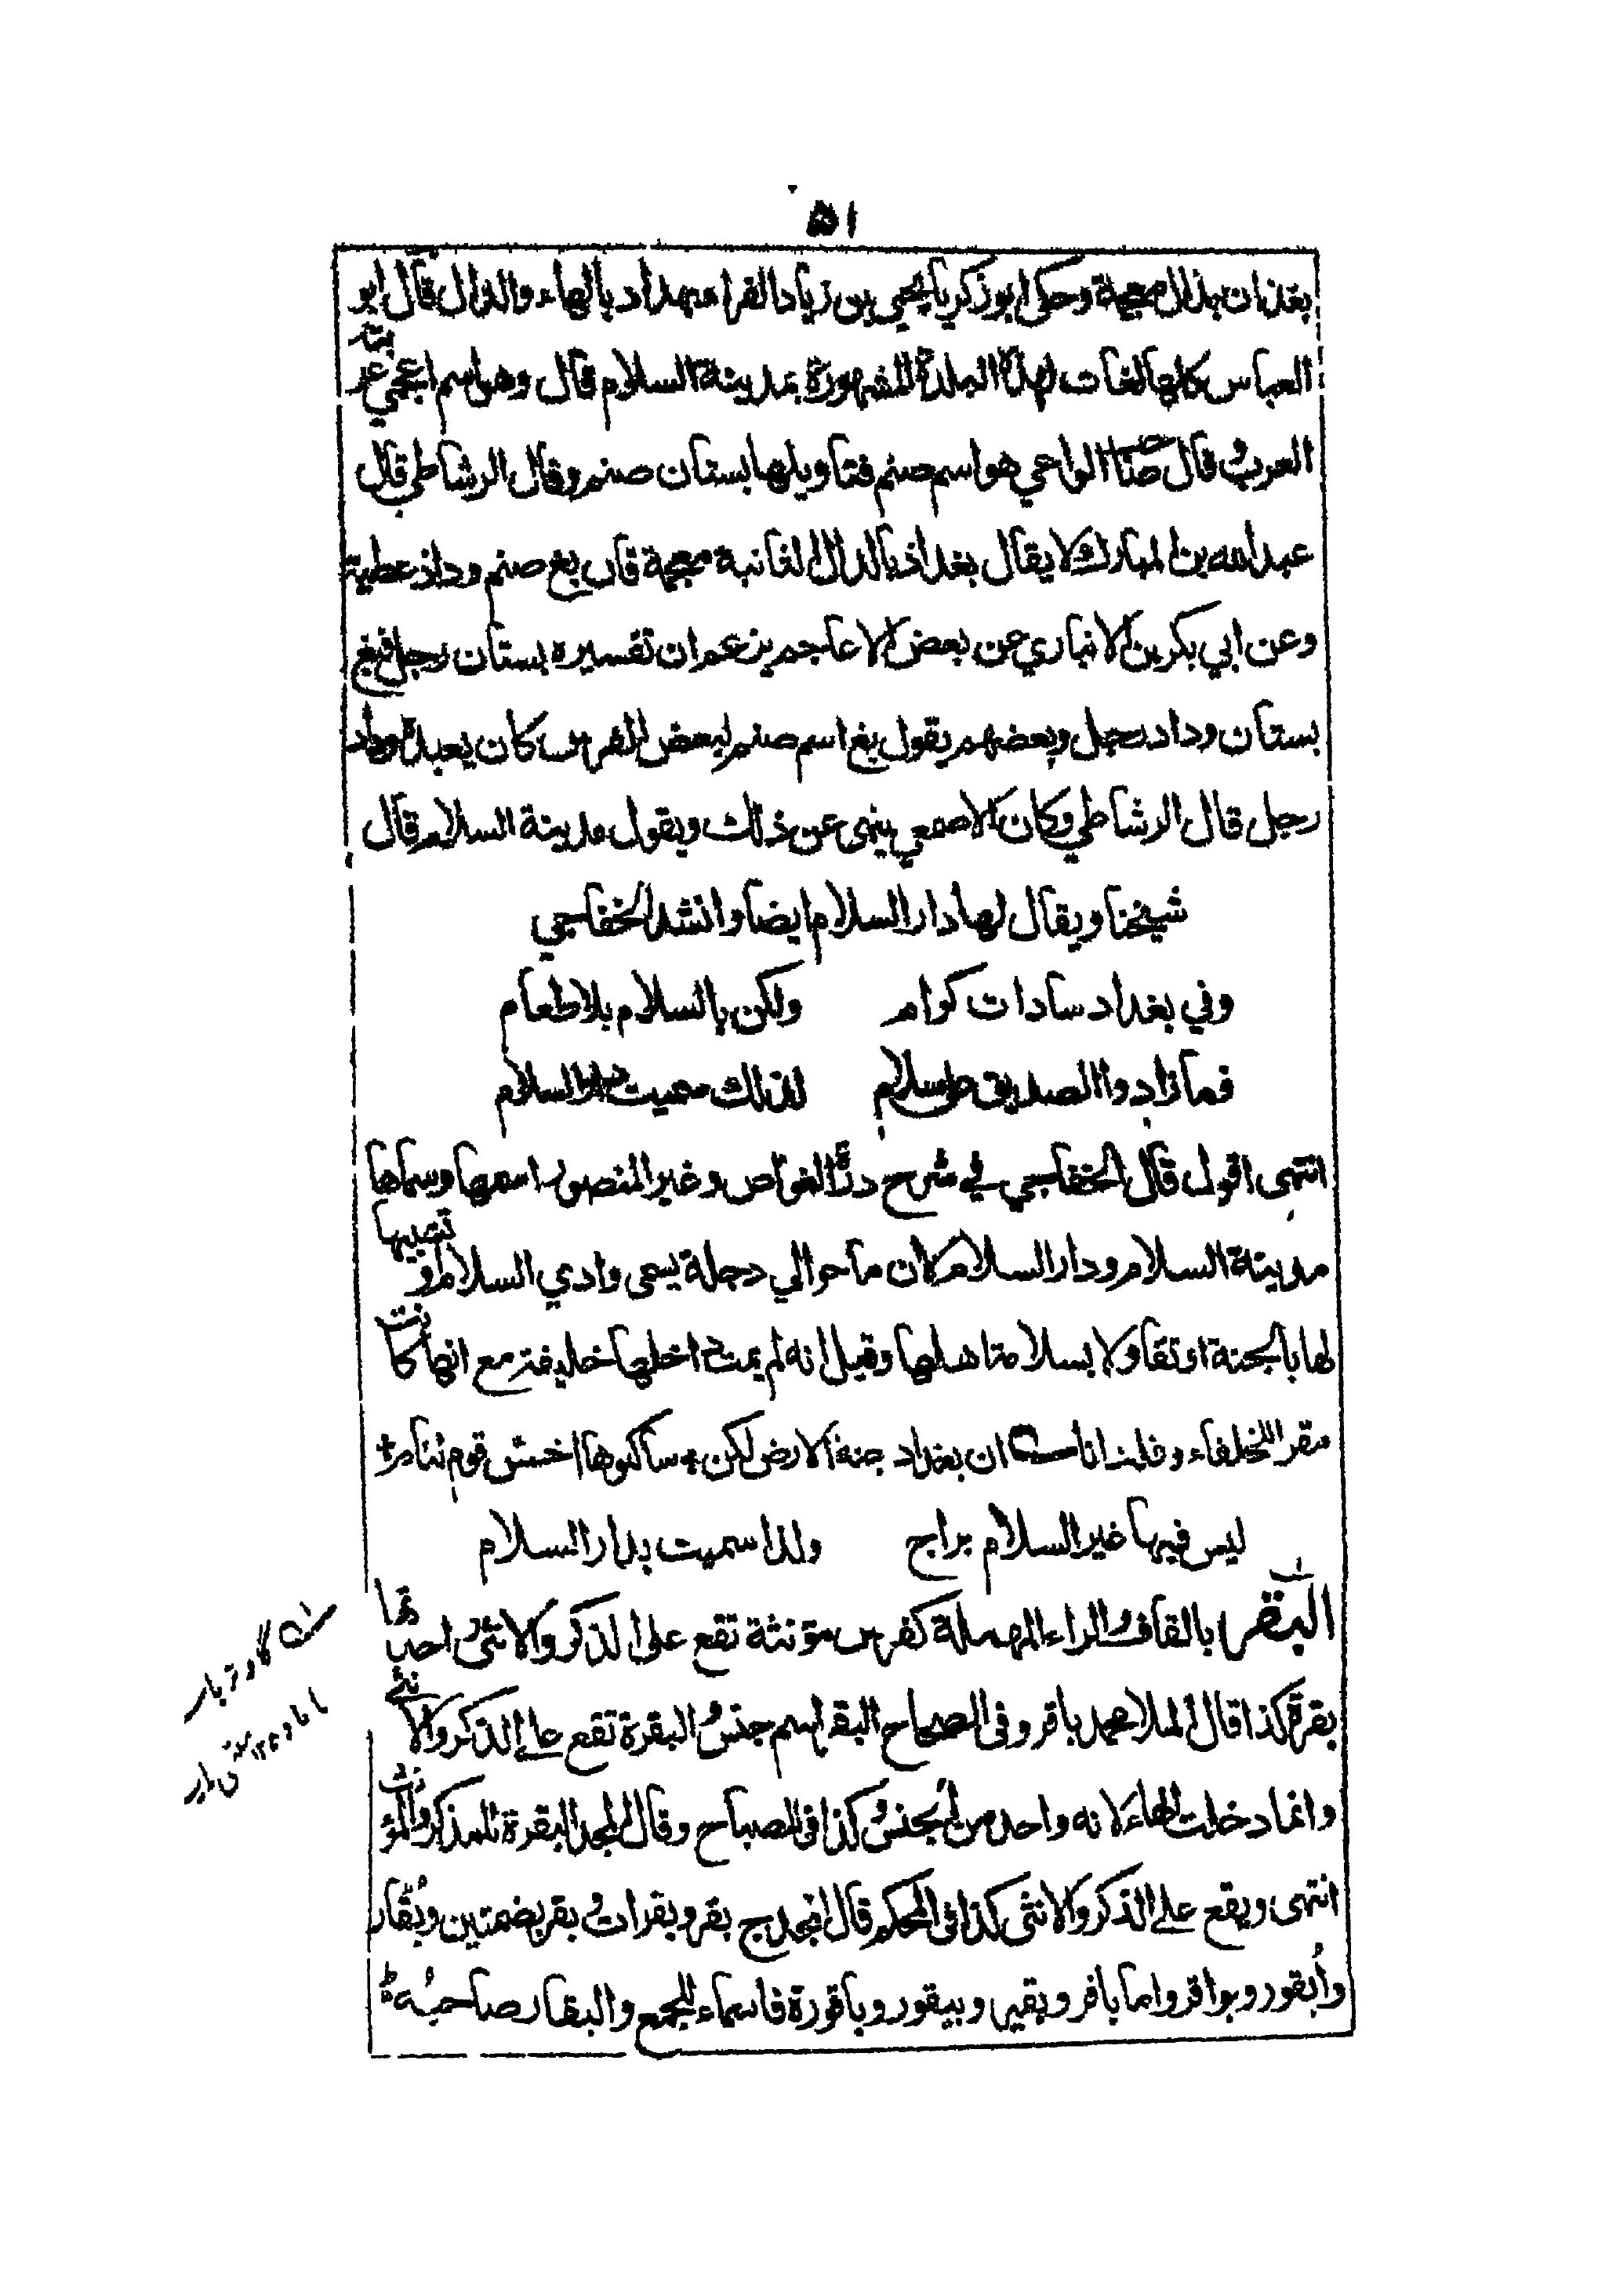 ٥١
بغذان بذال معجمة وحكى ابو زكريا يحيى بن زياد الفراء بهداد بالهاء والدال قال ابو
العباس كلها لغات لهذه البلدة المشهورة بمدينة السلام قال وهو اسم اعجمي عربته
العرب قال صنا الواحي هو اسم صنم فتاويلها بستان صنم وقال الرشاطي قال
عبد الله بن المبارك ولا يقال بغداذ بالدال الغانبة معجمة فان بغ صنم وداذ عطية
وعن ابي بكر بن الانباري عن بعض الاعاجم يزعم ان تفسيره بستان رجل فبغ
بستان وداد رجل وبعضهم يقول بغ اسم صنم لبعض الفرس كان يعبده وداد
رجل قال الرشاطي وكان الاصمعي ينهى عن ذلك ويقول مدينة السلام قال
شيخنا ويقال لها دار السلام ايضا وانشد الخفاجي
وفي بغداد سادات كرام ولكن بالسلام بلا طعام
فما زادوا الصديق على سلام لذلك سميت دار السلام
انتهى اقول قال الخفاجي في شرح درة الغواص وغير المنصور اسمها وسماها
مدينة السلام ودار السلام لان ما حوالي دجلة يسمى وادي السلام او تشبيها
لها بالجنة او تفاولا بسلامة اهلها وقيل انه لم يمت داخلها خليفة مع انها كانت
مقر الخلفاء وقلت انا ان بغداد جنة الارض لكن * ساكنوها اخس قوم ننامر
ليس فيها غير السلام براج ولذا سميت بدار السلام
البقر بالقاف والراء المهملة كفرس مؤنثة تقع على الذكر والانثى احبتها
بقرة كذا قال الملا محمد باقر وفى الصحاح البقر اسم جنس البقرة تقع على الذكر والانثى
وانما دخلت الهاء لانه واحد من الجنس كذا فى المصباح وقال المجد البقرة للمذكر والمؤنث
انتهى ويقع على الذكر والانثى كذا فى المحكم قال المجد ج بقر وبقرات وبقر بضمتين وبقار
وابقور وبواقر واما باقر وبقير وبيقور وباقورة فاسماء للجمع والبقار صاحبه